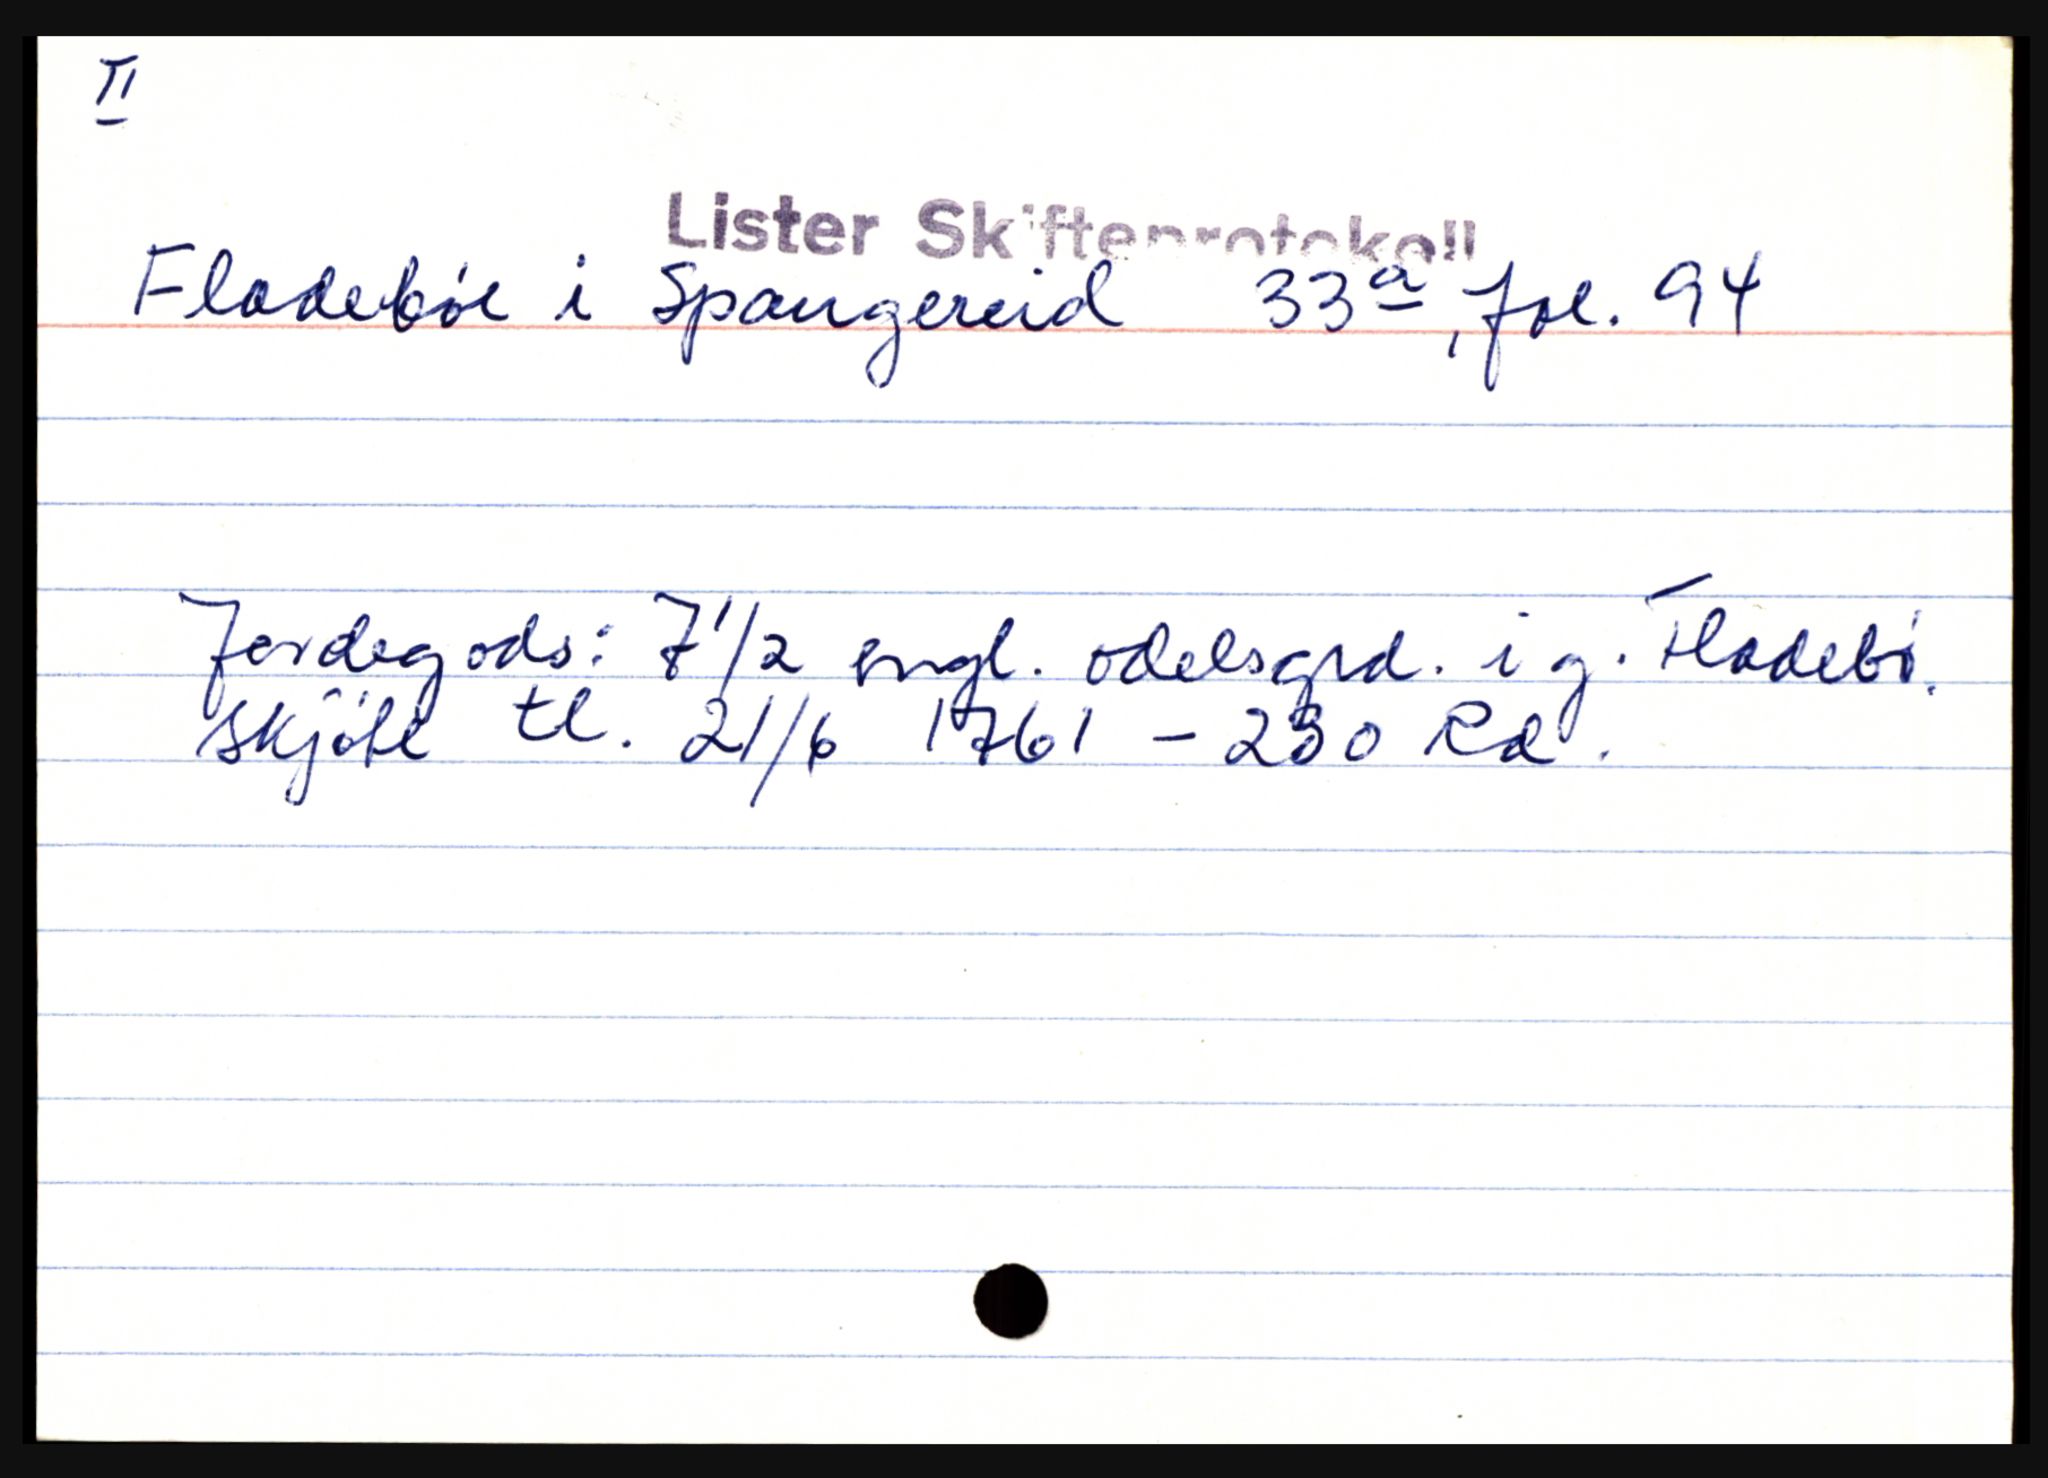 II
Lister Skifteprotokoll
Fladebøe i Spangereid 33a, fol. 94
Jordegods: 7 1/2 engl. odelsgrd. i g. Fladebø.
Skjøte tl. 21/6 1761 - 230 Rd.